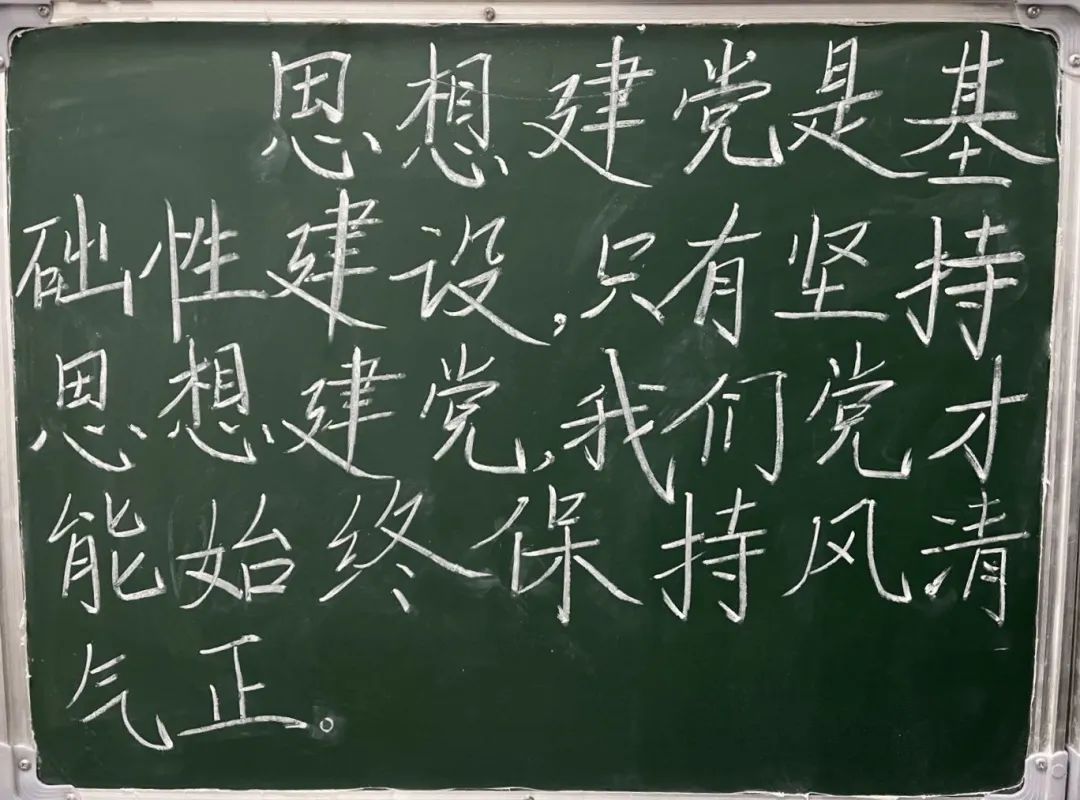 思想建党是基
础性建设,只有坚持
思想建党,我们党才
能始终保持风清
气正。